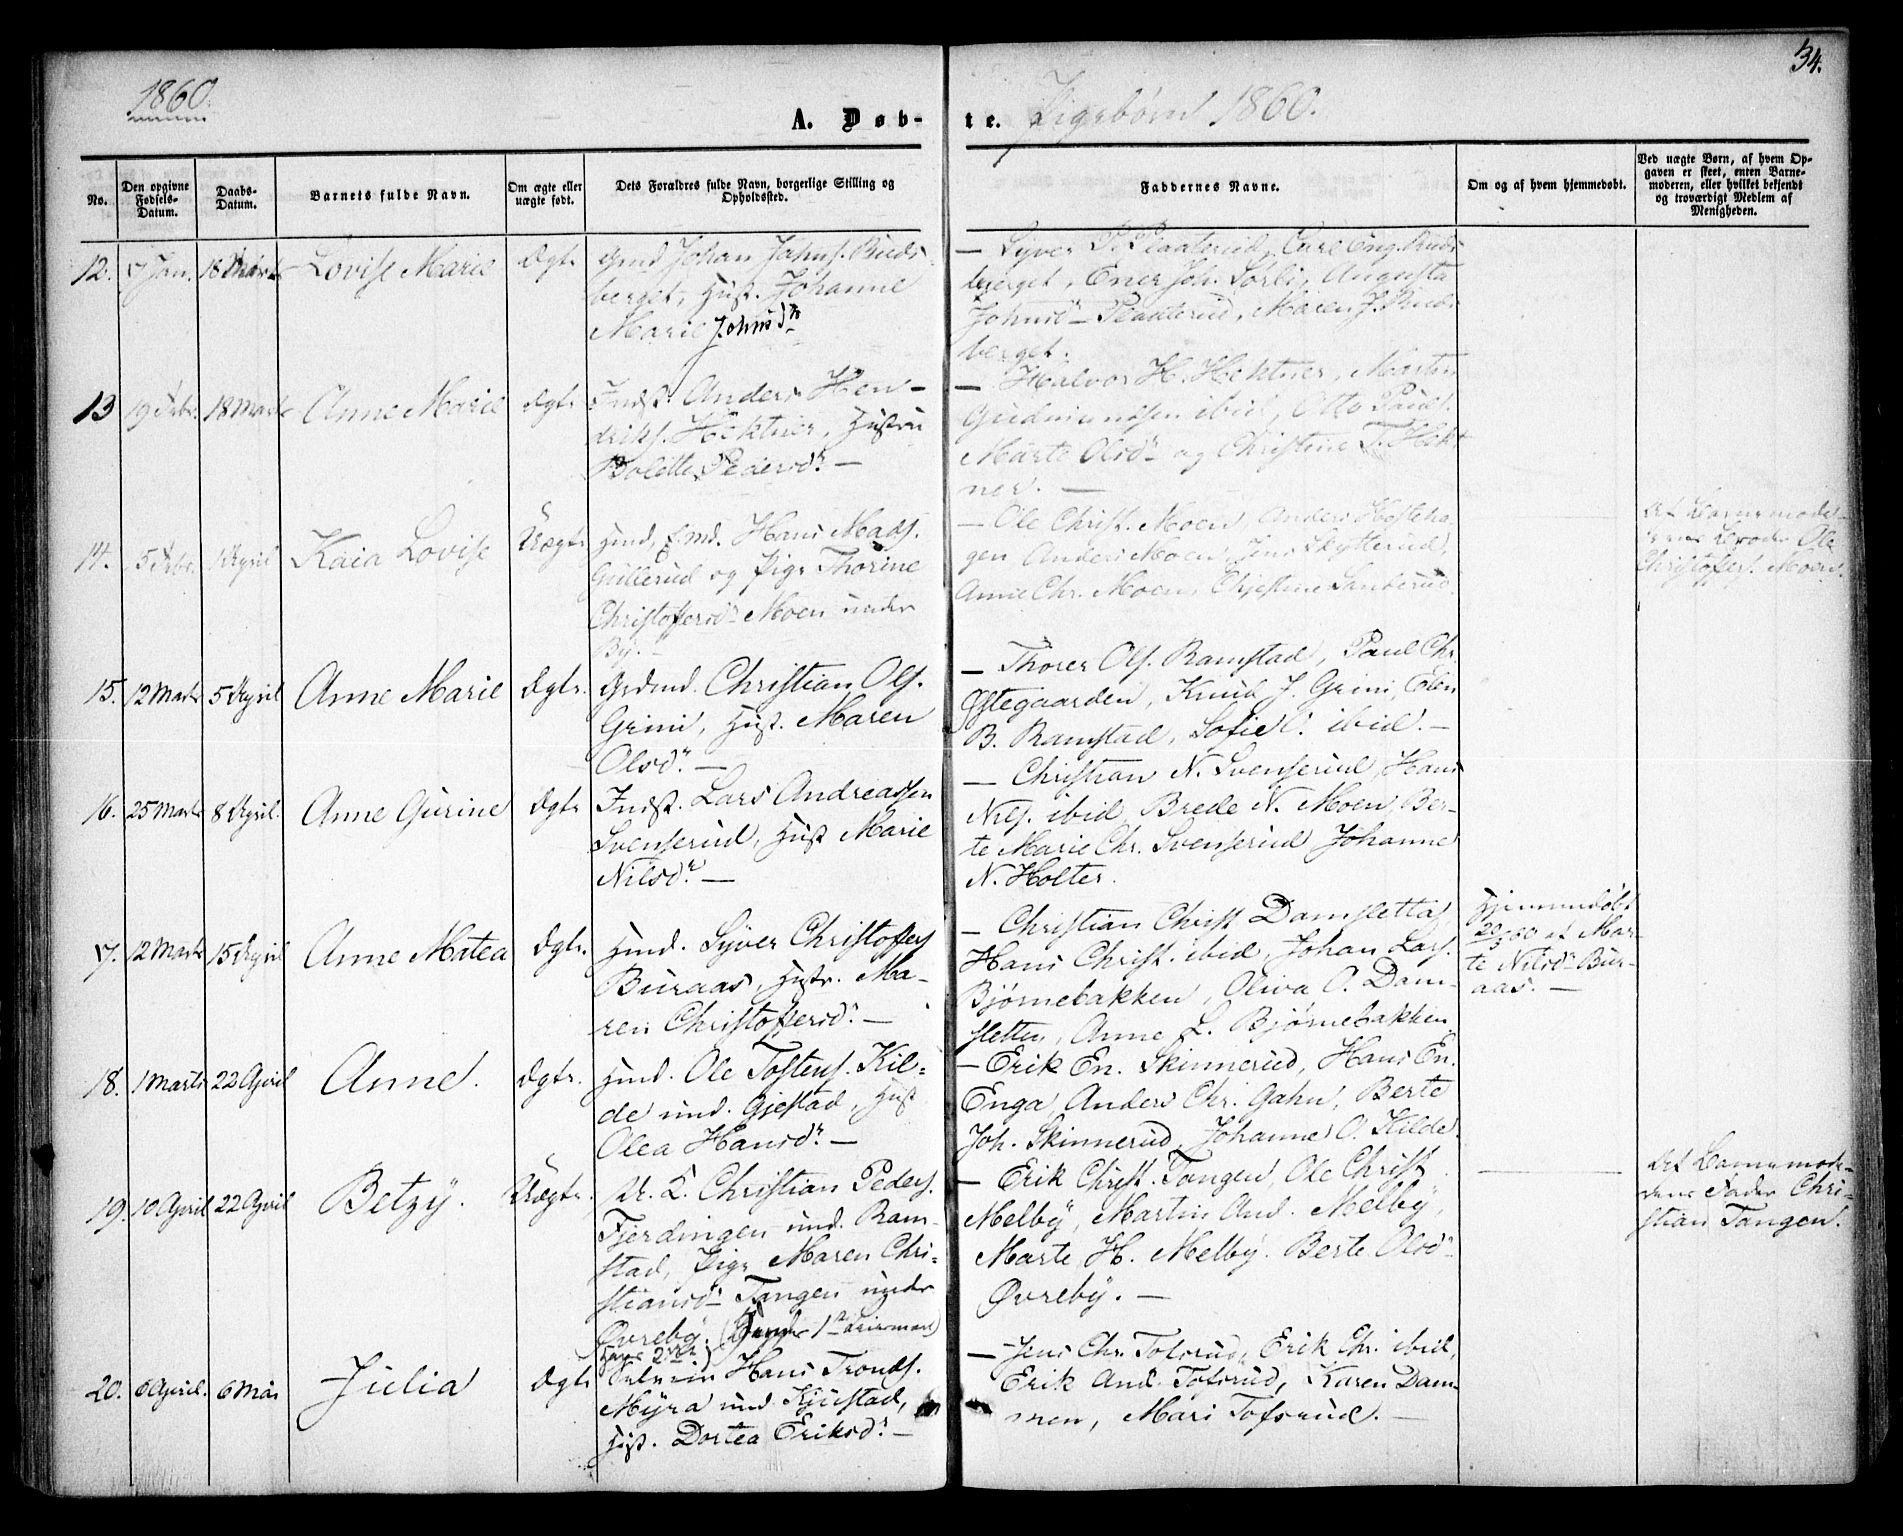 34.
1860.
A. Døb-
te. Pigebørn 1860.
No.
Den opgivne Fødsels-Datum.
Daabs-Datum.
Barnets fulde Navn.
Om ægte eller uægte født.
Dets Forældres fulde Navn, borgerlige Stilling og Opholdssted.
Faddernes Navne.
Om og af hvem hjemmedøbt.
Ved uægte Børn, af hvem Opgaven er skeet, enten Barnemoderen, eller hvilket bekjendt og troværdigt Medlem af Menigheden.
12. 7 Jan. 18 Marts Lovise Marie Ægte
Gmd Johan Johns. Ruds-
berget, Hust. Johanne
Marie Johnsdr
— Syver P. Plaaterud, Carl Eng. Ruds
berget, Ener Joh. Sørli, Augusta
Johnsdr Plaaterud, Maren J. Ruds
berget.
13 19 Febr. 18 Marts Anne Marie Ægte
Indst. Anders Hen-
driks. Hektner, Hustru
Bolette Pedersdr. —
— Halvor H. Hektner, Morten
Gudmundsen ibid, Otto Pauls.
Marte Olsdr og Christine T. Hekt
ner. —
14. 5 Febr. 1 April Kaia Lovise Uægte
Hmd, Emd. Hans Mads.
Gullerud og Pige Thorine
Christoffersdr Moen under
By. —
— Ole Christ. Moen, Anders Hesteha-
gen, Anders Moen, Jens Skytterud,
Anne Chr. Moen, Christine Sanderud.
Af Barnemode-
rens Broder Ole
Christoffers. Moen.
15. 12 Marts 5 April Anne Marie Ægte
Grdmd. Christian Ols.
Grini, Hust. Maren
Olsdr. —
— Thorer Ols. Ramstad, Paul Chr.
Østegaarden, Knud J. Grini, Elen
B. Ramstad, Sofie C. ibid. —
16. 25 Marts 8 April. Anne Gurine Ægte
Indst. Lars Andreassen
Svenserud, Hust Marie
Nilsdr. —
— Christian N. Svenserud, Hans
Nils. ibid, Brede N. Moen, Ber-
te Marie Chr. Svenserud Johanne
N. Holter.
17. 12 Marts 15 April Anne Matea Ægte.
Hmd. Syver Christoffers
Buraas, Hustr. Ma-
ren Christoffersdr. —
— Christian Christ Damsletta,
Hans Christ. ibid, Johan Lars.
Bjørnebakken, Oliva O. Dam-
sletten, Anne L. Bjørnebakken
Hjemmedøbt
20/3 60 af Mar-
te Nilsdr Bur-
aas. —
18. 1 Marts 22 April Anne. Ægte.
Hmd. Ole Tostens. Kil-
de und. Gjestad, Hust
Olea Hansdr. —
— Erik En. Skinnerud, Hans En.
Enga, Anders Chr. Gahn, Berte
Joh. Skinnerud, Johanne O. Kilde.
19. 10 April 22 April Betzy. Uægte.
U. K. Christian Peders.
Fjerdingen und. Ram-
stad, Pige Maren Chri-
stiansdr Tangen under
Øvreby. (Hendes 1ste Leiermaal)
Hans 2det
— Erik Christ. Tangen, Ole Christ.
Melby, Martin And. Melby,
Marte H. Melby. Berte Olsdr
Øvreby. —
Af Barnemode-
rens Fader Chri-
stian Tangen.
20. 6 April. 6 Mai Julia Ægte
Selveier Hans Tronds.
Myra und Kjustad,
Hust. Dortea Eriksdr. —
— Jens Chr. Tofsrud, Erik Chr. ibid,
Erik And. Tofsrud, Karen Dam-
men, Mari Tofsrud. —